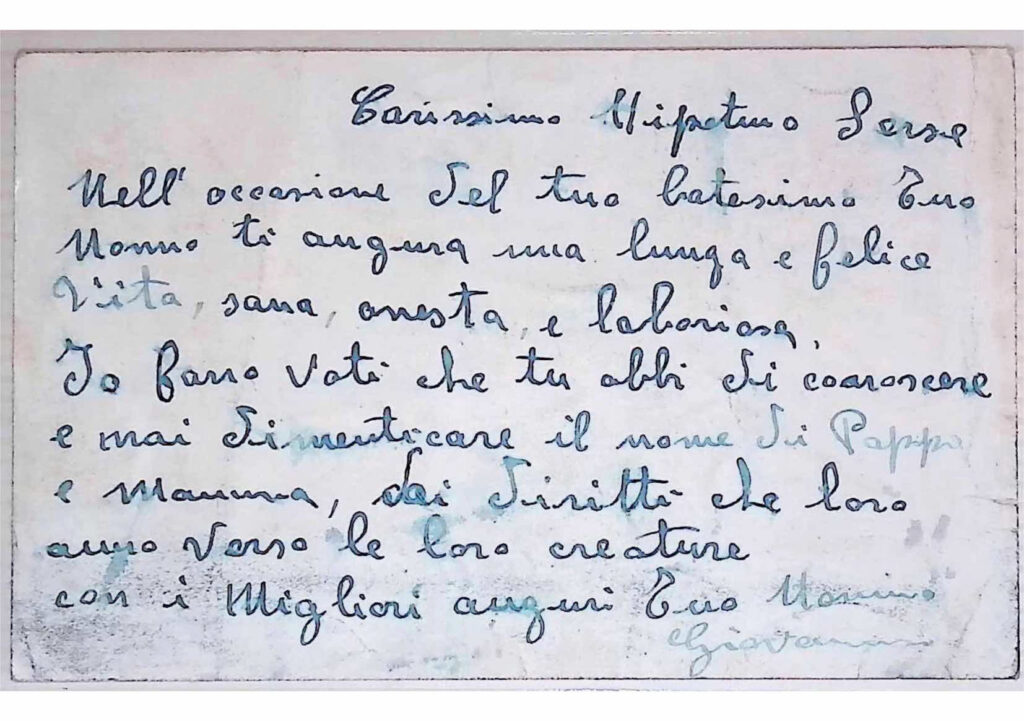 Carissimo Nipotino Serse
Nell' occasione del tuo batesimo Tuo
Nonno ti augura una lunga e felice
Vita, sana, onesta, e laboriosa,
Io farro Voti che tu abbi di conoscere
e mai dimenticare il nome di Pappa
e Mamma, dei diritti che loro
anno Verso le loro creature
con i Migliori auguri Tuo Nonnino
Giovanni